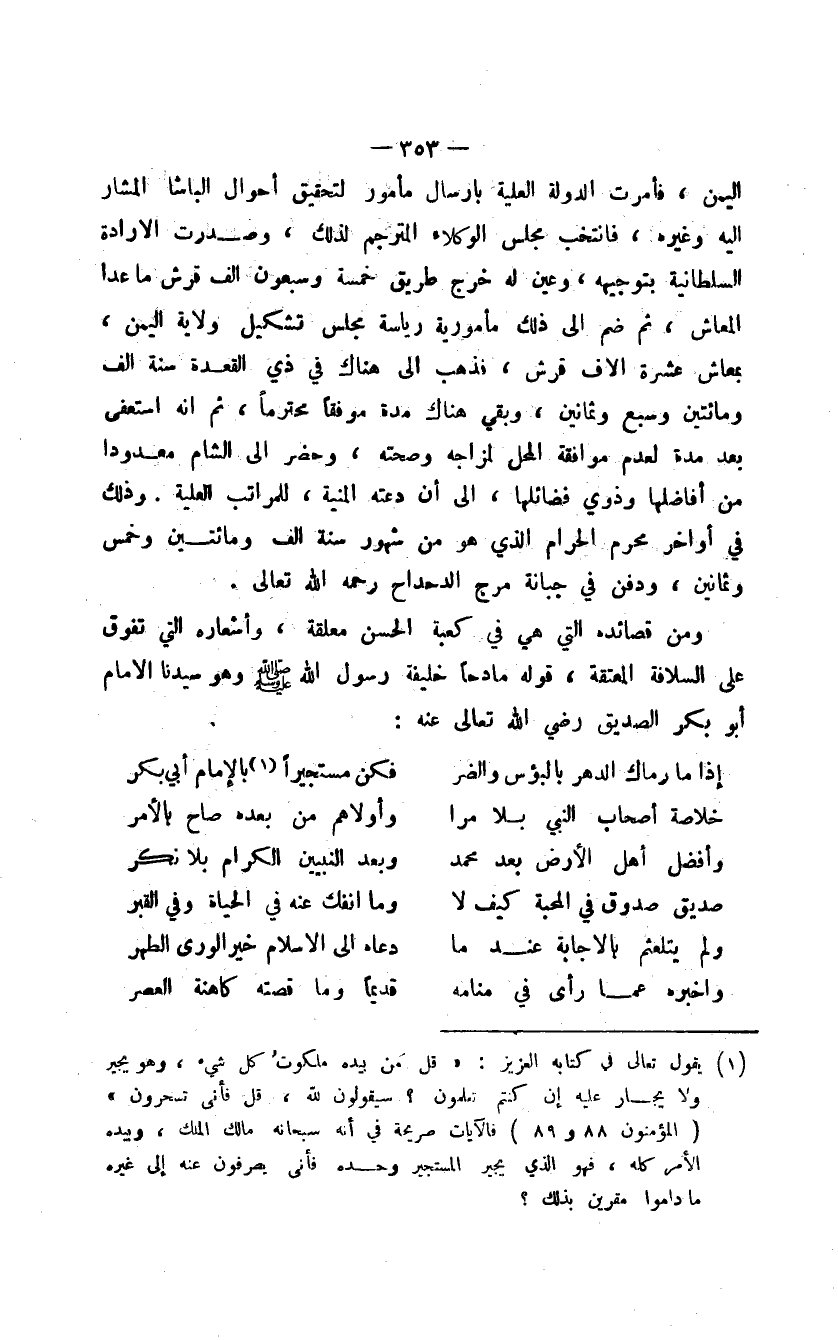 — ٣٥٣ —
اليمن ، فأمرت الدولة العلية بارسال مأمور لتحقيق أحوال الباشا المشار
اليه وغيره ، فانتخب مجلس الوكلاء المترجم لذلك ، وصدرت الارادة
السلطانية بتوجيهه ، وعين له خرج طريق خمسة وسبعون الف قرش ماعدا
المعاش ، ثم ضم الى ذلك مأمورية رياسة مجلس تشكيل ولاية اليمن ،
بمعاش عشرة الاف قرش ، فذهب الى هناك في ذي القعدة سنة الف
ومائتين وسبع وثمانين ، وبقي هناك مدة موفقاً محترماً ، ثم انه استعفى
بعد مدة لعدم موافقة المحل لمزاجه وصحته ، وحضر الى الشام معدودا
من أفاضلها وذوي فضائلها ، الى أن دعته المنية ، للمراتب العلية . وذلك
في أواخر محرم الحرام الذي هو من شهور سنة الف ومائتين وخمس
وثمانين ، ودفن في جبانة مرج الدحداح رحمه الله تعالى .
ومن قصائده التي هي في كعبة الحسن معلقة ، وأشعاره التي تفوق
على السلافة المعتقة ، قوله مادحاً خليفة رسول الله ﷺ وهو سيدنا الامام
أبو بكر الصديق رضي الله تعالى عنه :
إذا ما رماك الدهر بالبؤس والضر فكن مستجيراً (١) بالإمام أبي بكر
خلاصة أصحاب النبي بلا مرا وأولاهم من بعده صاح بالأمر
وأفضل أهل الأرض بعد محمد وبعد النبيين الكرام بلا نكر
صديق صدوق في المحبة كيف لا وما انفك عنه في الحياة وفي القبر
ولم يتلعثم بالاجابة عند ما دعاه الى الاسلام خير الورى الطهر
واخبره عما رأى في منامه قديماً وما قصته كاهنة العصر
(١) يقول تعالى في كتابه العزيز : « قل مَن بيده ملكوتُ كل شيء ، وهو يجير
ولا يجار عليه إن كنتم تعلمون ؟ سيقولون لله ، قل فأنى تسحرون »
( المؤمنون ٨٨ و ٨٩ ) فالآيات صريحة في أنه سبحانه مالك الملك ، وبيده
الأمر كله ، فهو الذي يجير المستجير وحده فأنى يصرفون عنه إلى غيره
ما داموا مقرين بذلك ؟